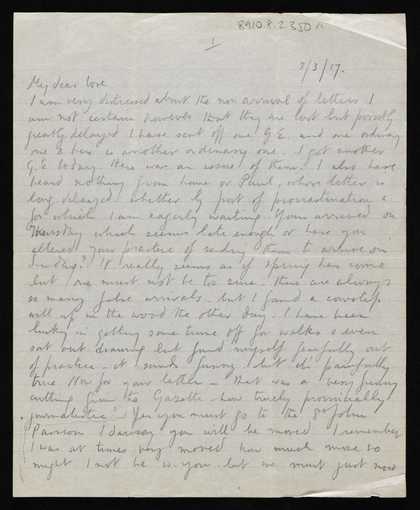 8910.8.2.350
1
3/3/17.
My dear love
I am very distressed about the non arrival of letters. I
am not certain however that they are lost but possibly
greatly delayed I have sent off one G.E. and one ordinary
one & here is another ordinary one. I got another
G.E. today. There was an issue of them. I also have
heard nothing from home or Paul, whose letter is
long delayed whether by post or procrastination &
for which I am eagerly waiting. Your arrived on
Thursday which seems late enough or have you
altered your practice of sending them to arrive on
Sunday? It really seems as if Spring has come
but one must not be too sure. There are always
so many false arrivals. but I found a cowslip
well up in the wood the other day. I have been
lucky in getting some time off for walks & even
sat out drawing but found myself painfully out
of practice – it sounds funny, but it's painfully
true Now for your letter – That was a very funny
cutting from the Gazette how truly provincially
journalistic! Yes you must go to the St John
Passion I daresay you will be moved I remember
I was at times very moved how much more so
might I not be w. you. but we must just now